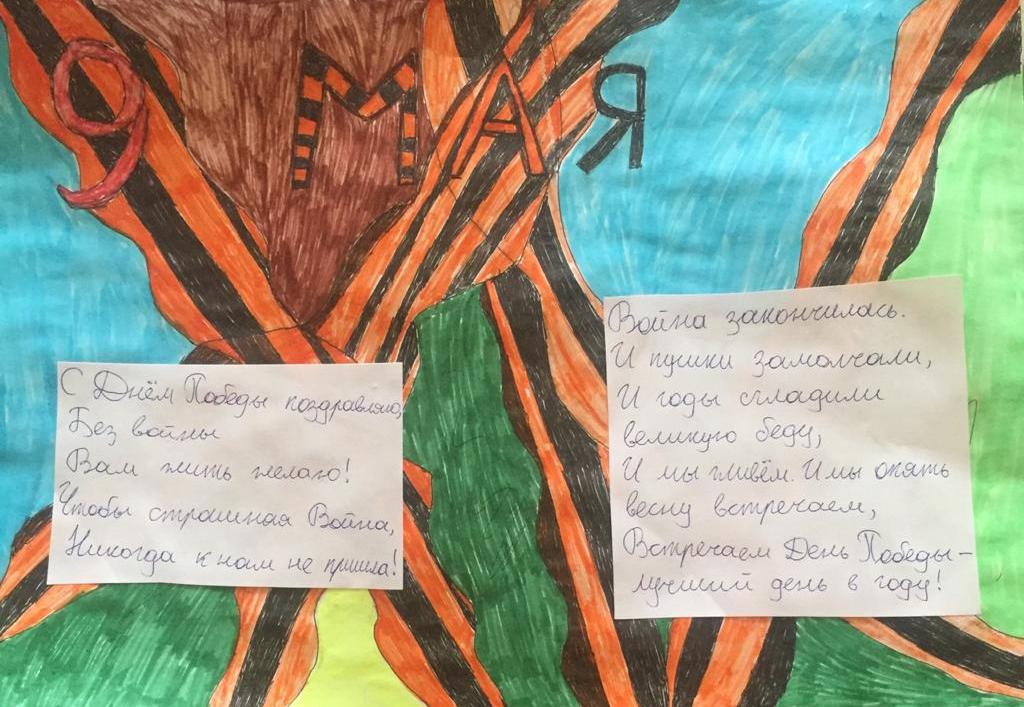 9 МАЯ
С Днём Победы поздравляю,
Без войны
Вам жить желаю!
Чтобы страшная Война,
Никогда к нам не пришла!
Война закончилась.
И пушки замолчали,
И годы сгладили
великую беду,
И мы живём. И мы опять
весну встречаем,
Встречаем День Победы-
лучший день в году!